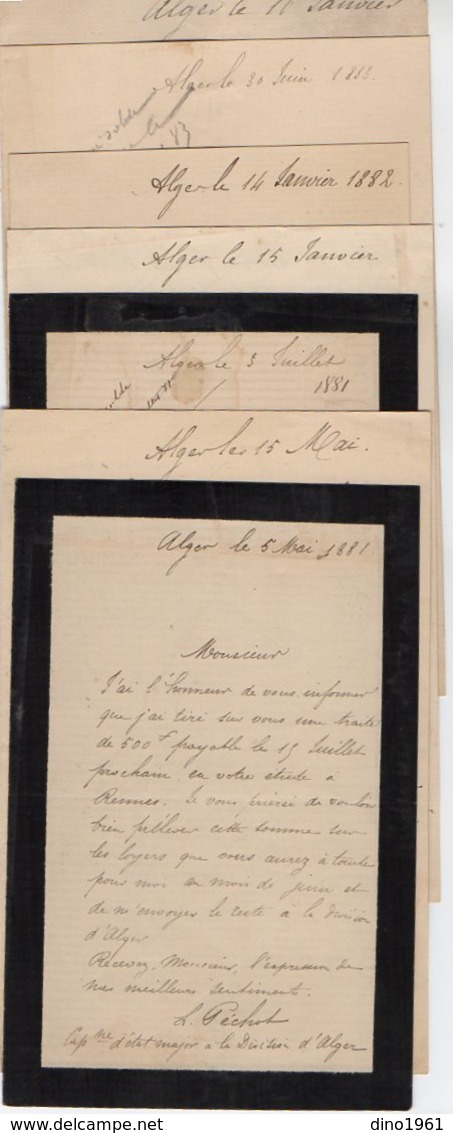 Alger le 11 Janvier
Alger le 30 Juin 1883.
83
Alger le 14 Janvier 1882.
Alger le 15 Janvier
Alger le 3 Juillet
1881
Alger le 15 Mai.
Alger le 5 Mai 1881
Monsieur
J'ai l'honneur de vous informer
que j'ai tiré sur vous une traite
de 500f payable le 15 Juillet
prochain en votre étude à
Rennes. Je vous prierai de vouloir
bien prélever cette somme sur
les loyers que vous aurez à toucher
pour moi au mois de juin et
de m'envoyer le reste à la division
d'Alger
Recevez, Monsieur, l'expression de
mes meilleurs sentiments.
L. Péchot
Capne d'état major à la Division d'Alger
dino1961